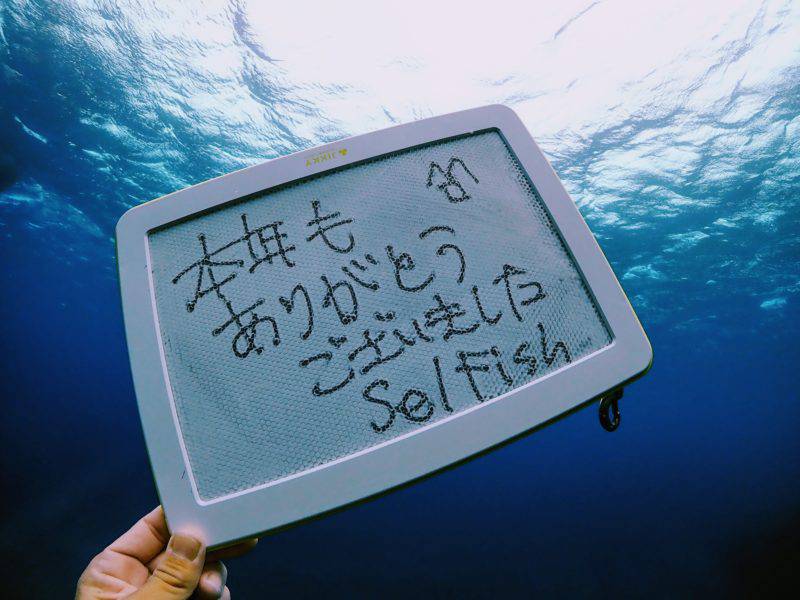 JIKKY
本年も
ありがとう
ございました
Selfish